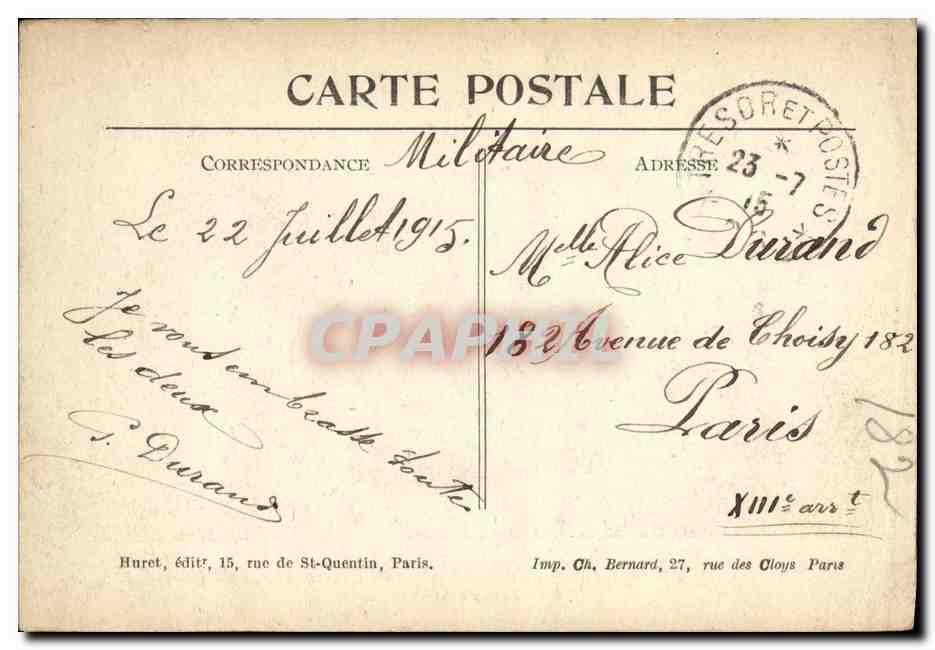 CARTE POSTALE
TRESOR ET POSTES
23 -7
15
CORRESPONDANCE
Militaire
ADRESSE
Le 22 Juillet 1915.
Je vous embrasse toutes
les deux
P. Durand
Melle Alice Durand
182 Avenue de Choisy 182
Paris
XIIIe arrt
182
CPAPHIL
Huret, éditr, 15, rue de St-Quentin, Paris.
Imp. Ch. Bernard, 27, rue des Cloys Paris